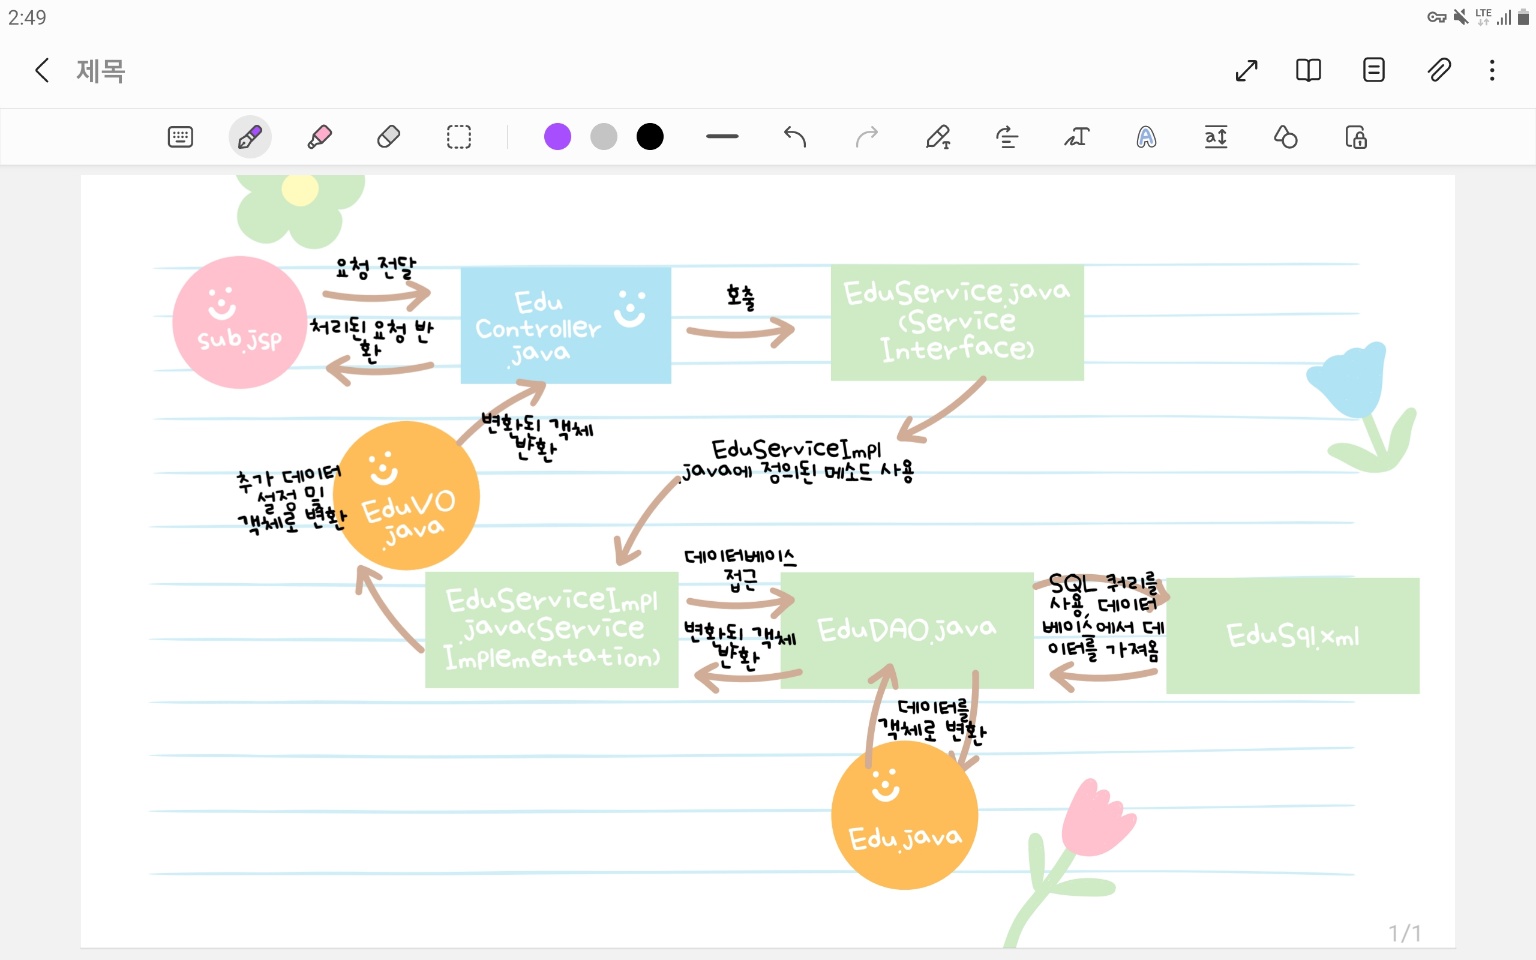 2:49
LTE
제목
요청 전달
sub.jsp
처리된 요청 반
환
Edu
Controller
.java
호출
EduService.java
(Service
Interface)
변환된 객체
반환
EduServiceImpl
.java에 정의된 메소드 사용
추가 데이터
설정 및
객체로 변환
EduVO
.java
EduServiceImpl
.java(Service
Implementation)
데이터베이스
접근
변환된 객체
반환
EduDAO.java
SQL 쿼리를
사용, 데이터
베이스에서 데
이터를 가져옴
EduSql.xml
데이터를
객체로 변환
Edu.java
1/1